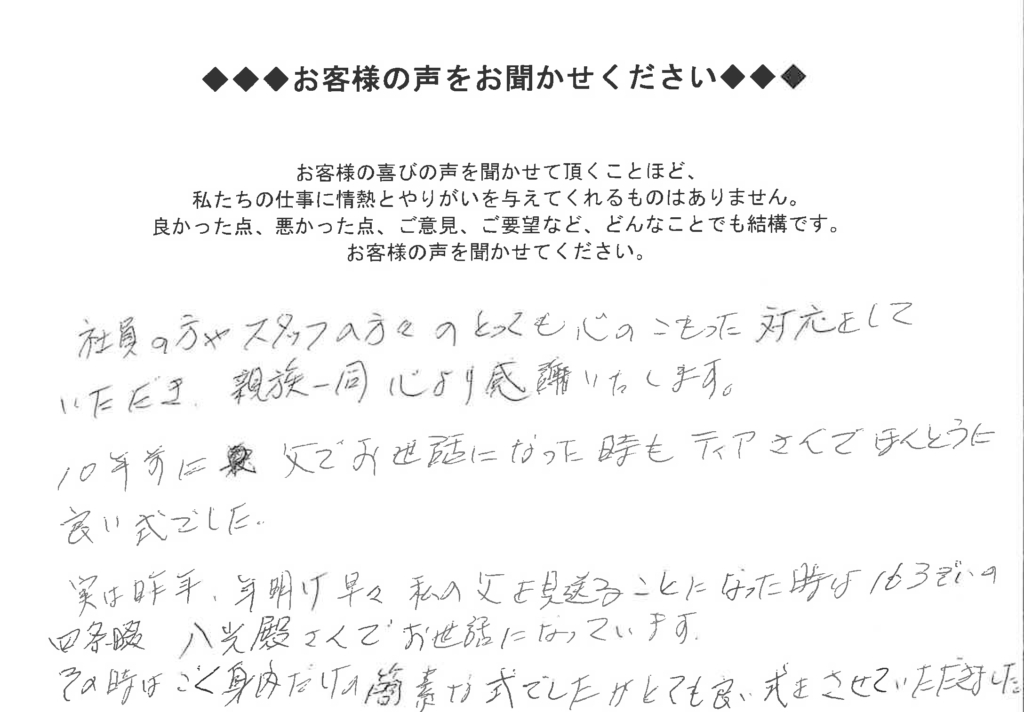 ◆◆◆お客様の声をお聞かせください◆◆◆
お客様の喜びの声を聞かせて頂くことほど、
私たちの仕事に情熱とやりがいを与えてくれるものはありません。
良かった点、悪かった点、ご意見、ご要望など、どんなことでも結構です。
お客様の声を聞かせてください。
社員の方やスタッフの方々のとっても心のこもった対応をして
いただき、親族一同心より感謝いたします。
10年前に 父でお世話になった時もティアさんでほんとうに
良い式でした。
実は昨年、年明け早々私の父を見送ることになった時は163ぞいの
四条畷 八光殿さんでお世話になっています。
その時はごく身内だけの簡素な式でしたがとても良い式をさせていただきました